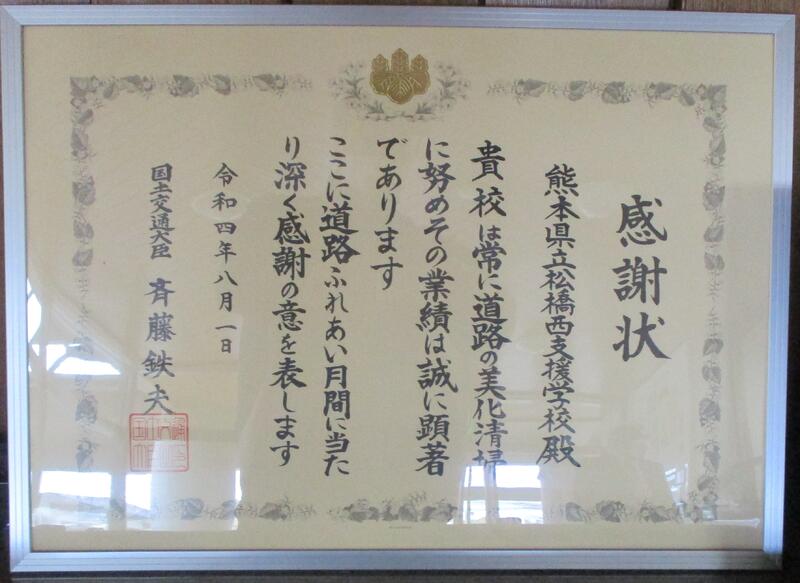 感謝状
熊本県立松橋西支援学校殿
貴校は常に道路の美化清掃
に努めその業績は誠に顕著
であります
ここに道路ふれあい月間に当た
り深く感謝の意を表します
令和四年八月一日
国土交通大臣 斉藤鉄夫